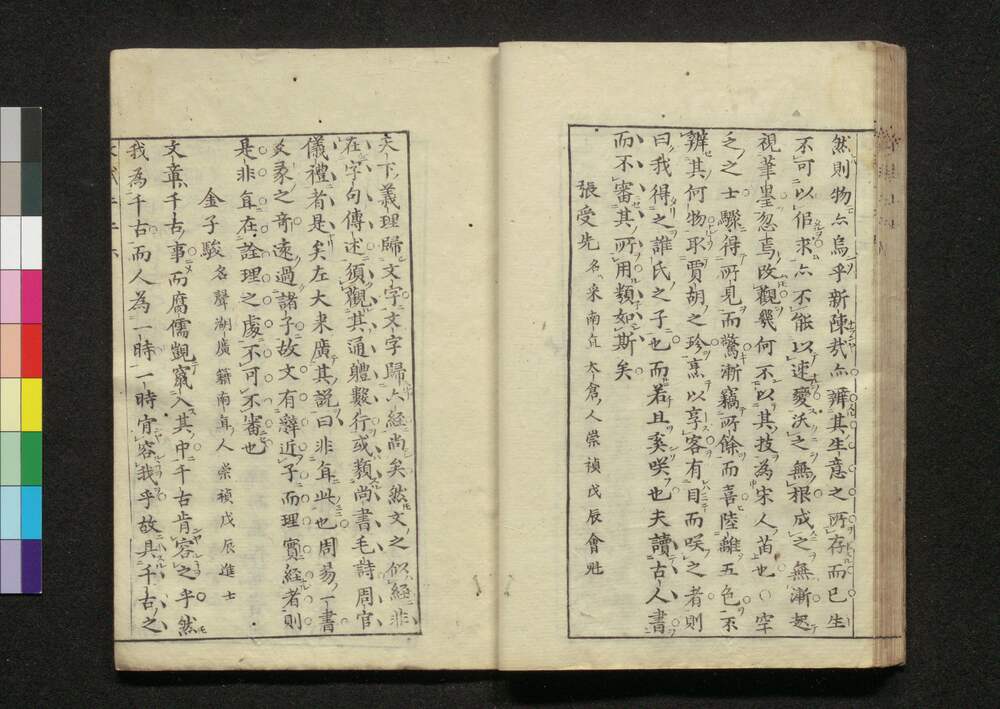 然則物亦烏乎新陳㢤亦辨其生意之所存而已生
不可以佀求亦不能以速變沃之無根成之無漸起
視筆墨忽焉改觀幾何不以其技為宋人苗也○罕
之之士驟得所見而驚漸竊所餘而喜陸離五色不
辨其何物取賈胡之珍烹以享客有目而咲之者則
曰我得之誰氏之子也而若且奚咲也夫讀古人書
而不審其所用類如斯矣
張受先 名采南直太倉人崇禎戊辰會魁
天下義理歸文字文字歸六經尚矣然文之似經非
在字句傳述須觀其通體數行或類尚書毛詩周官
儀禮者是矣左大来廣其說曰非耳此也周易一書
爻彖之奇遠過諸子故文有辭近子而理實經者則
是非耳在詮理之處不可不審也
金子駿 名聲湖廣籍南直人崇禎戊辰進士
文章千古事而腐儒覬竄入其中千古肯容之乎然
我為千古而人為一時一時宜容我乎故具千古之